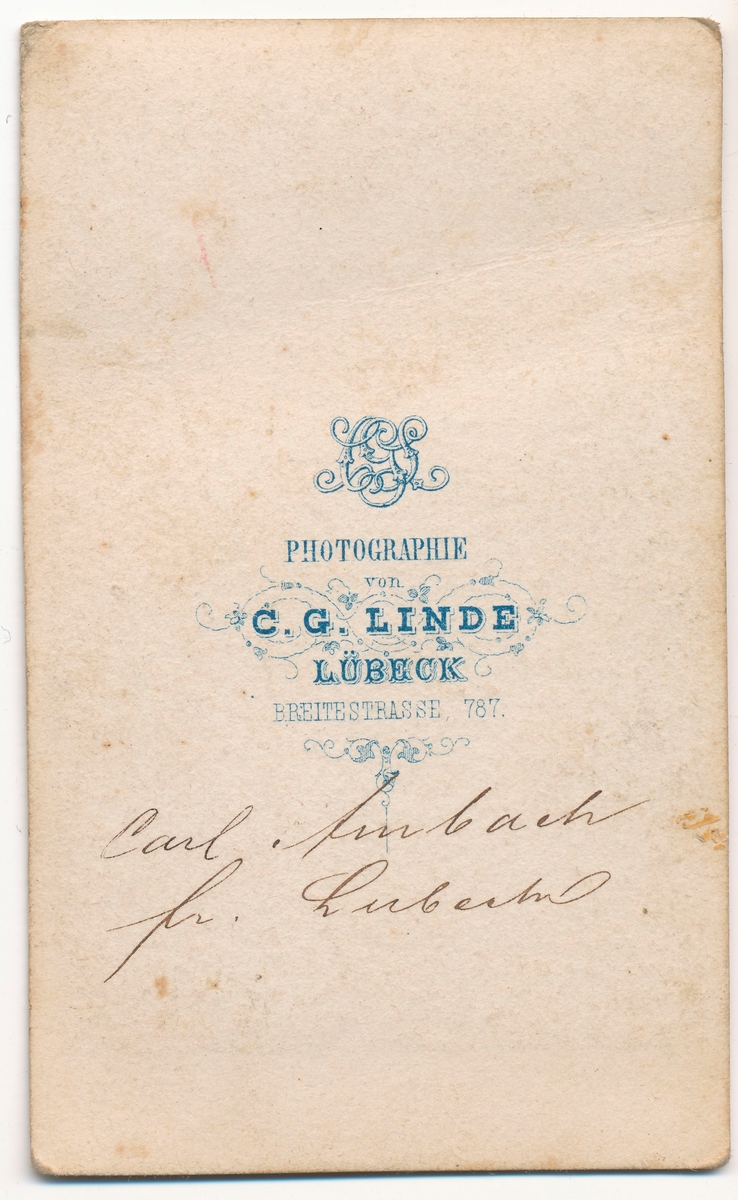 PHOTOGRAPHIE
von
C. G. LINDE
LÜBECK
BREITESTRASSE, 787.
Carl Ambach
fr. Lubeck